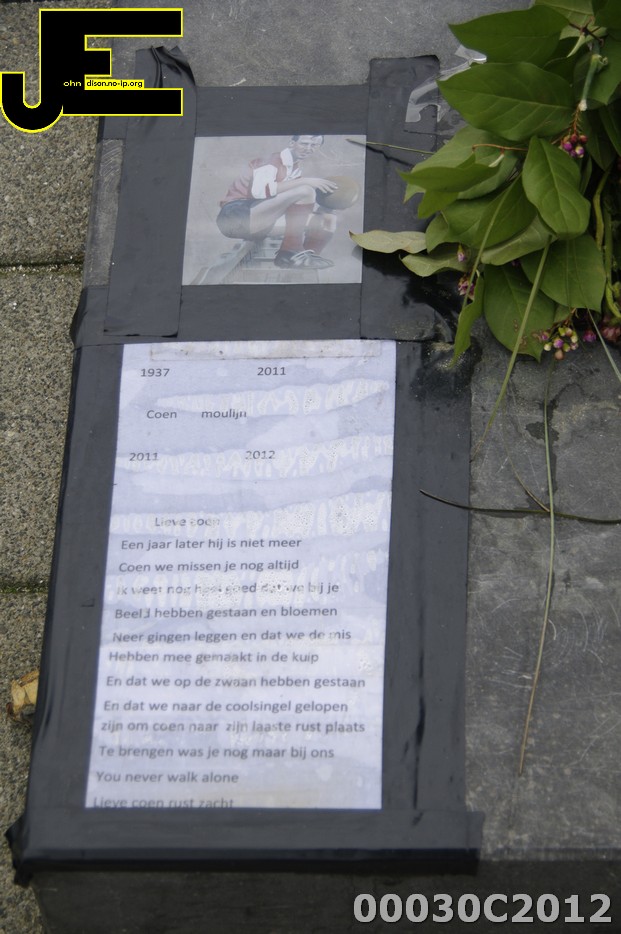 JE
ohn dison.no-ip.org
1937 2011
Coen moulijn
2011 2012
Lieve coen
Een jaar later hij is niet meer
Coen we missen je nog altijd
ik weet nog heel goed dat we bij je
Beeld hebben gestaan en bloemen
Neer gingen leggen en dat we de mis
Hebben mee gemaakt in de kuip
En dat we op de zwaan hebben gestaan
En dat we naar de coolsingel gelopen
zijn om coen naar zijn laaste rust plaats
Te brengen was je nog maar bij ons
You never walk alone
Lieve coen rust zacht
00030C2012